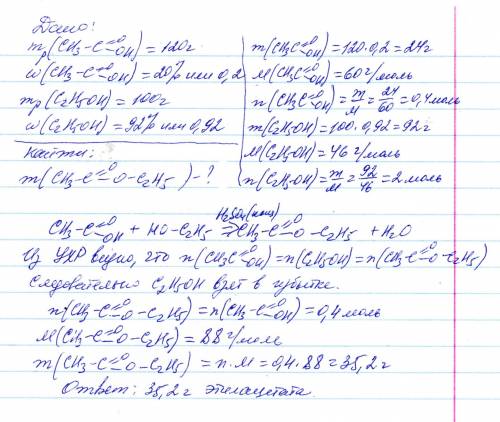 Дано:
mр(CH3-C=O-OH) = 120г
ω(CH3-C=O-OH) = 20% или 0,2
mр(C2H5OH) = 100г
ω(C2H5OH) = 92% или 0,92
Найти:
m(CH3-C=O-O-C2H5) - ?
m(CH3C=O-OH) = 120·0,2 = 24г
M(CH3C=O-OH) = 60г/моль
n(CH3C=O-OH) = m/M = 24/60 = 0,4моль
m(C2H5OH) = 100·0,92 = 92г
M(C2H5OH) = 46г/моль
n(C2H5OH) = m/M = 92/46 = 2моль
H2SO4(конц)
CH3-C=O-OH + HO-C2H5 ⇌ CH3-C=O-O-C2H5 + H2O
Из УХР видно, что n(CH3C=O-OH) = n(C2H5OH) = n(CH3-C=O-O-C2H5)
Следовательно C2H5OH взят в избытке.
n(CH3-C=O-O-C2H5) = n(CH3-C=O-OH) = 0,4моль
M(CH3-C=O-O-C2H5) = 88г/моль
m(CH3-C=O-O-C2H5) = n·M = 0,4·88 = 35,2г
Ответ: 35,2г этилацетата.